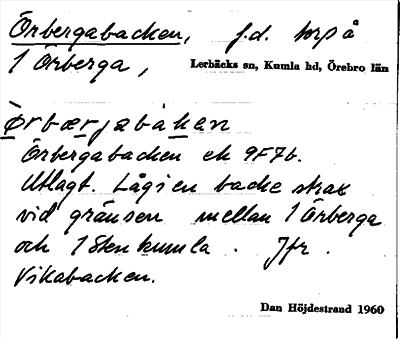 Örbergabacken, f.d. torp å
1 Örberga,
Lerbäcks sn, Kumla hd, Örebro län
Örbærjabakan
Örbergabacken ek 9F7b.
Utlagt. Låg i en backe strax
vid gränsen mellan 1 Örberga
och 1 Stenkumla. Jfr.
Vikabacken.
Dan Höjdestrand 1960